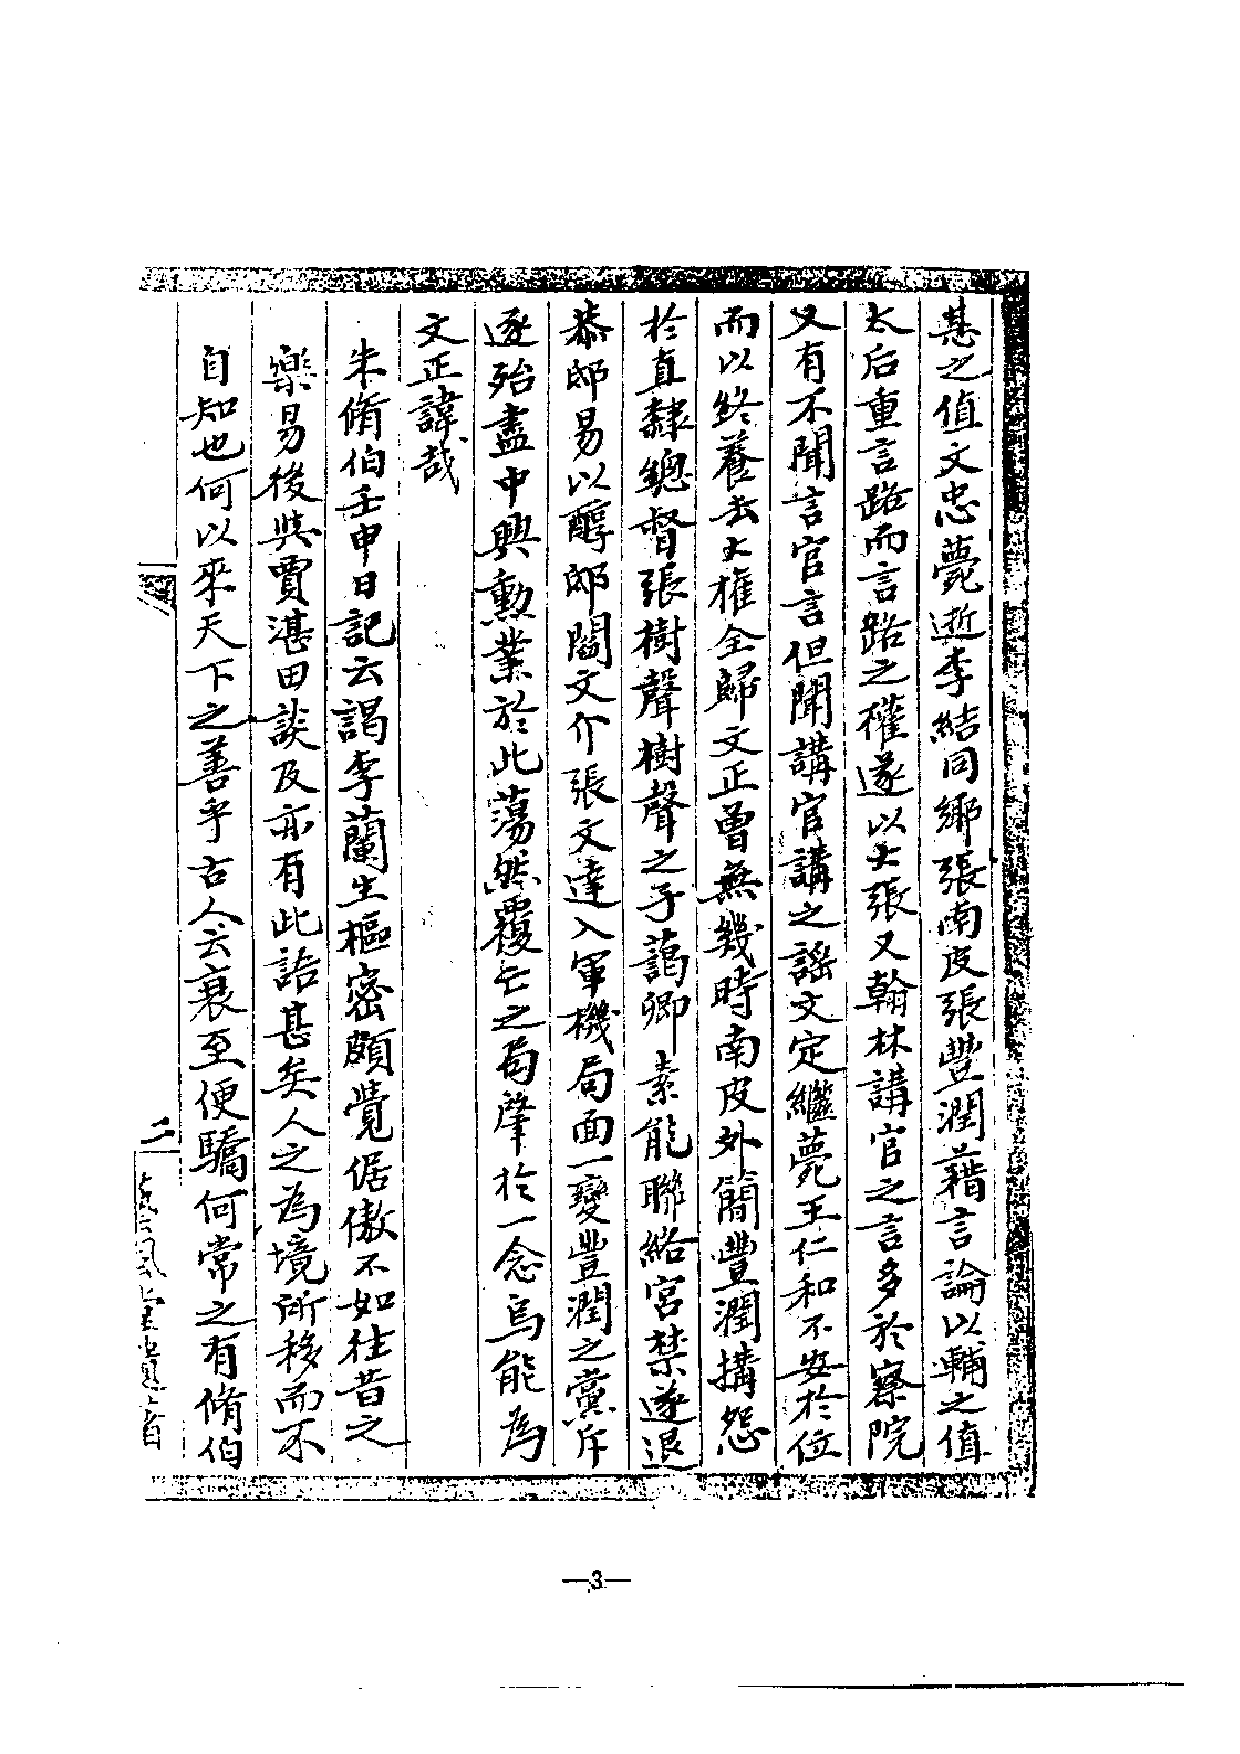 惎之值文忠薨逝李結同鄉張南皮張豐潤藉言論以輔之值
太后重言路而言路之權遂以大張又翰林講官之言多於察院
又有不聞言官言但聞講官講之謠文定繼薨王仁和不安於位
而以終養去大權全歸文正曾無幾時南皮外簡豐潤搆怨
於直隸總督張樹聲樹聲之子藹卿素能聯絡宮禁遂退
恭邸易以醇邸閻文介張文達入軍機局面一變豐潤之黨斥
逐殆盡中興勳業於此蕩然覆亡之局肇於一念烏能為
文正諱哉
朱脩伯壬申日記云謁李蘭生樞密頗覺倨傲不如往昔之
樂易後與賈湛田談及亦有此語甚矣人之為境所移而不
自知也何以來天下之善乎古人云衰至便驕何常之有脩伯
二
風堂遺著
—3—